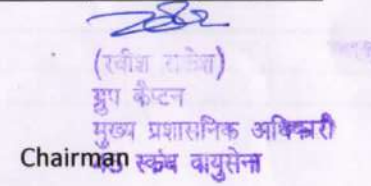 (रवीश
ग्रुप कैप्टन
मुख्य प्रशासनिक अधिकारी
Chairman स्कंध वायुसेना